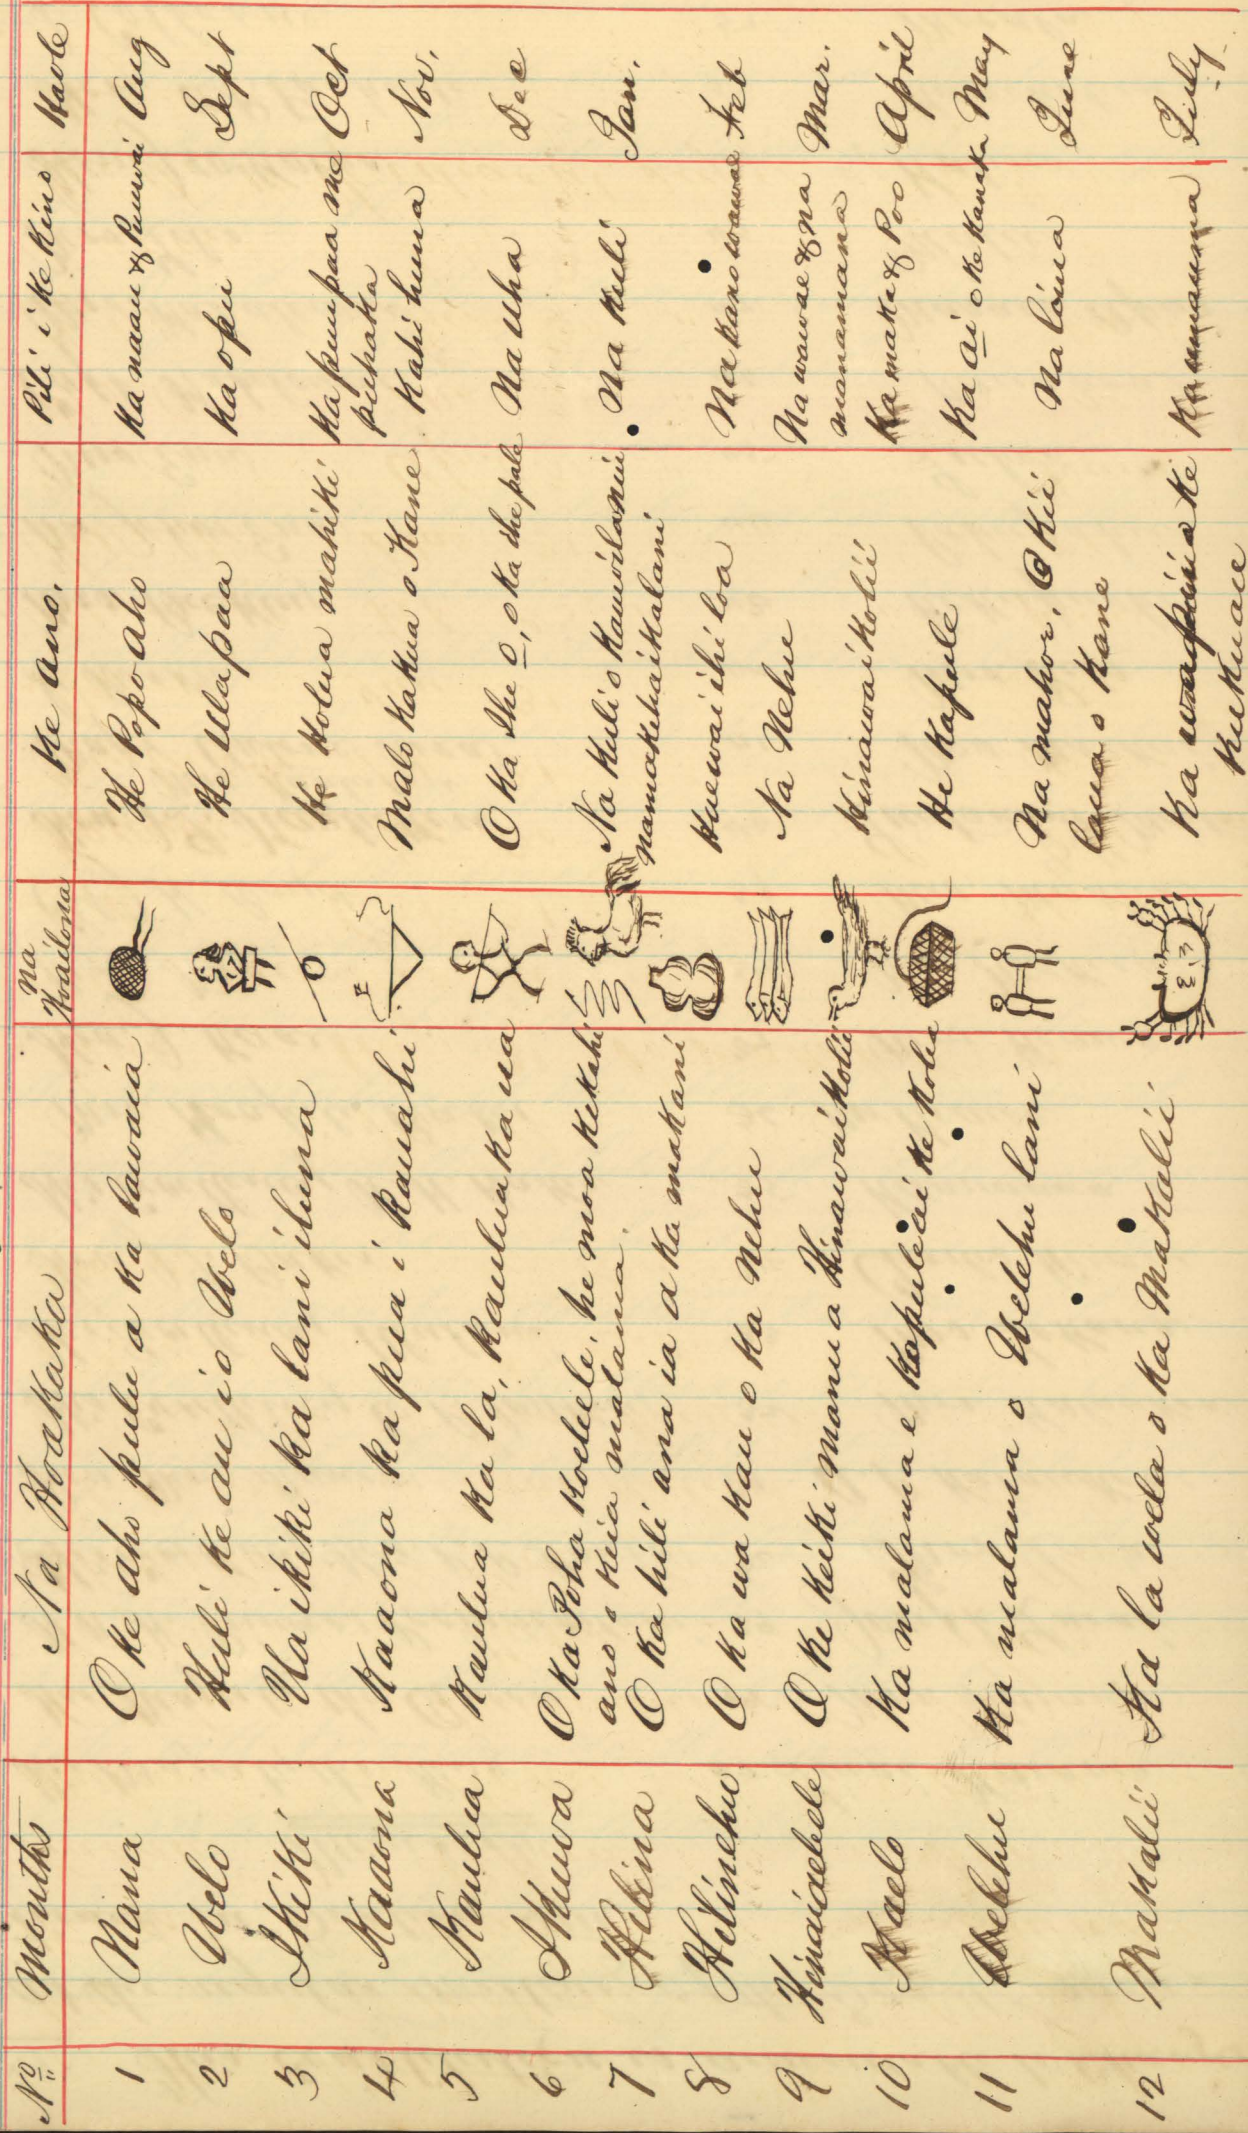 No. Months Na Hoakaka Na Hoailona Ke Ano. Pili i ke Kino Haole
1 Nana O ke aho pulu a ka lawaia He Popo aho Ka naau & Puuwai Aug
2 Welo Huli ke au i o Welo He Ulapaa Ka opu Sept
3 Ikiki Ua ikiki ka lani iluna He Kolua mahiki Ka puupaa me Oct
puhaka
4 Kaaona Kaaona ka pua i kauahi Malo Kakua o Kane Kahi huna Nov.
5 Kaulua Kaulua ka la, Kaulua ka ua O ka Ihe o, o ka Ihe pale Na uha Dec
6 Ikuwa O ka Poha Koeleele, he moa kekahi Na kuli o Kauwilanui Na kuli Jan.
ano o keia malama. namakehaikalani
7 Hilina O ka hili ana ia a ka makani Huewai ihi loa Na kano wawae Feb
8 Hilinehu O ka wa kau o ka nehu Na Nehu Na wawae & na Mar.
manamana
9 Hinaiaeleele O ke keiki manu a Hinawaikolii Hinawaikolii Ka maka & Poo April
10 Kaelo Ka malama e kapule ai ke kolea He Kapule Ka ai o ke kanaka May
11 Welehu Ka malama o Welehu lani Na mahoe, O Kii Na lima June
laua o Kane
12 Makalii Ka la wela o ka Makalii Ka o ke Ka umauma July
kukuau